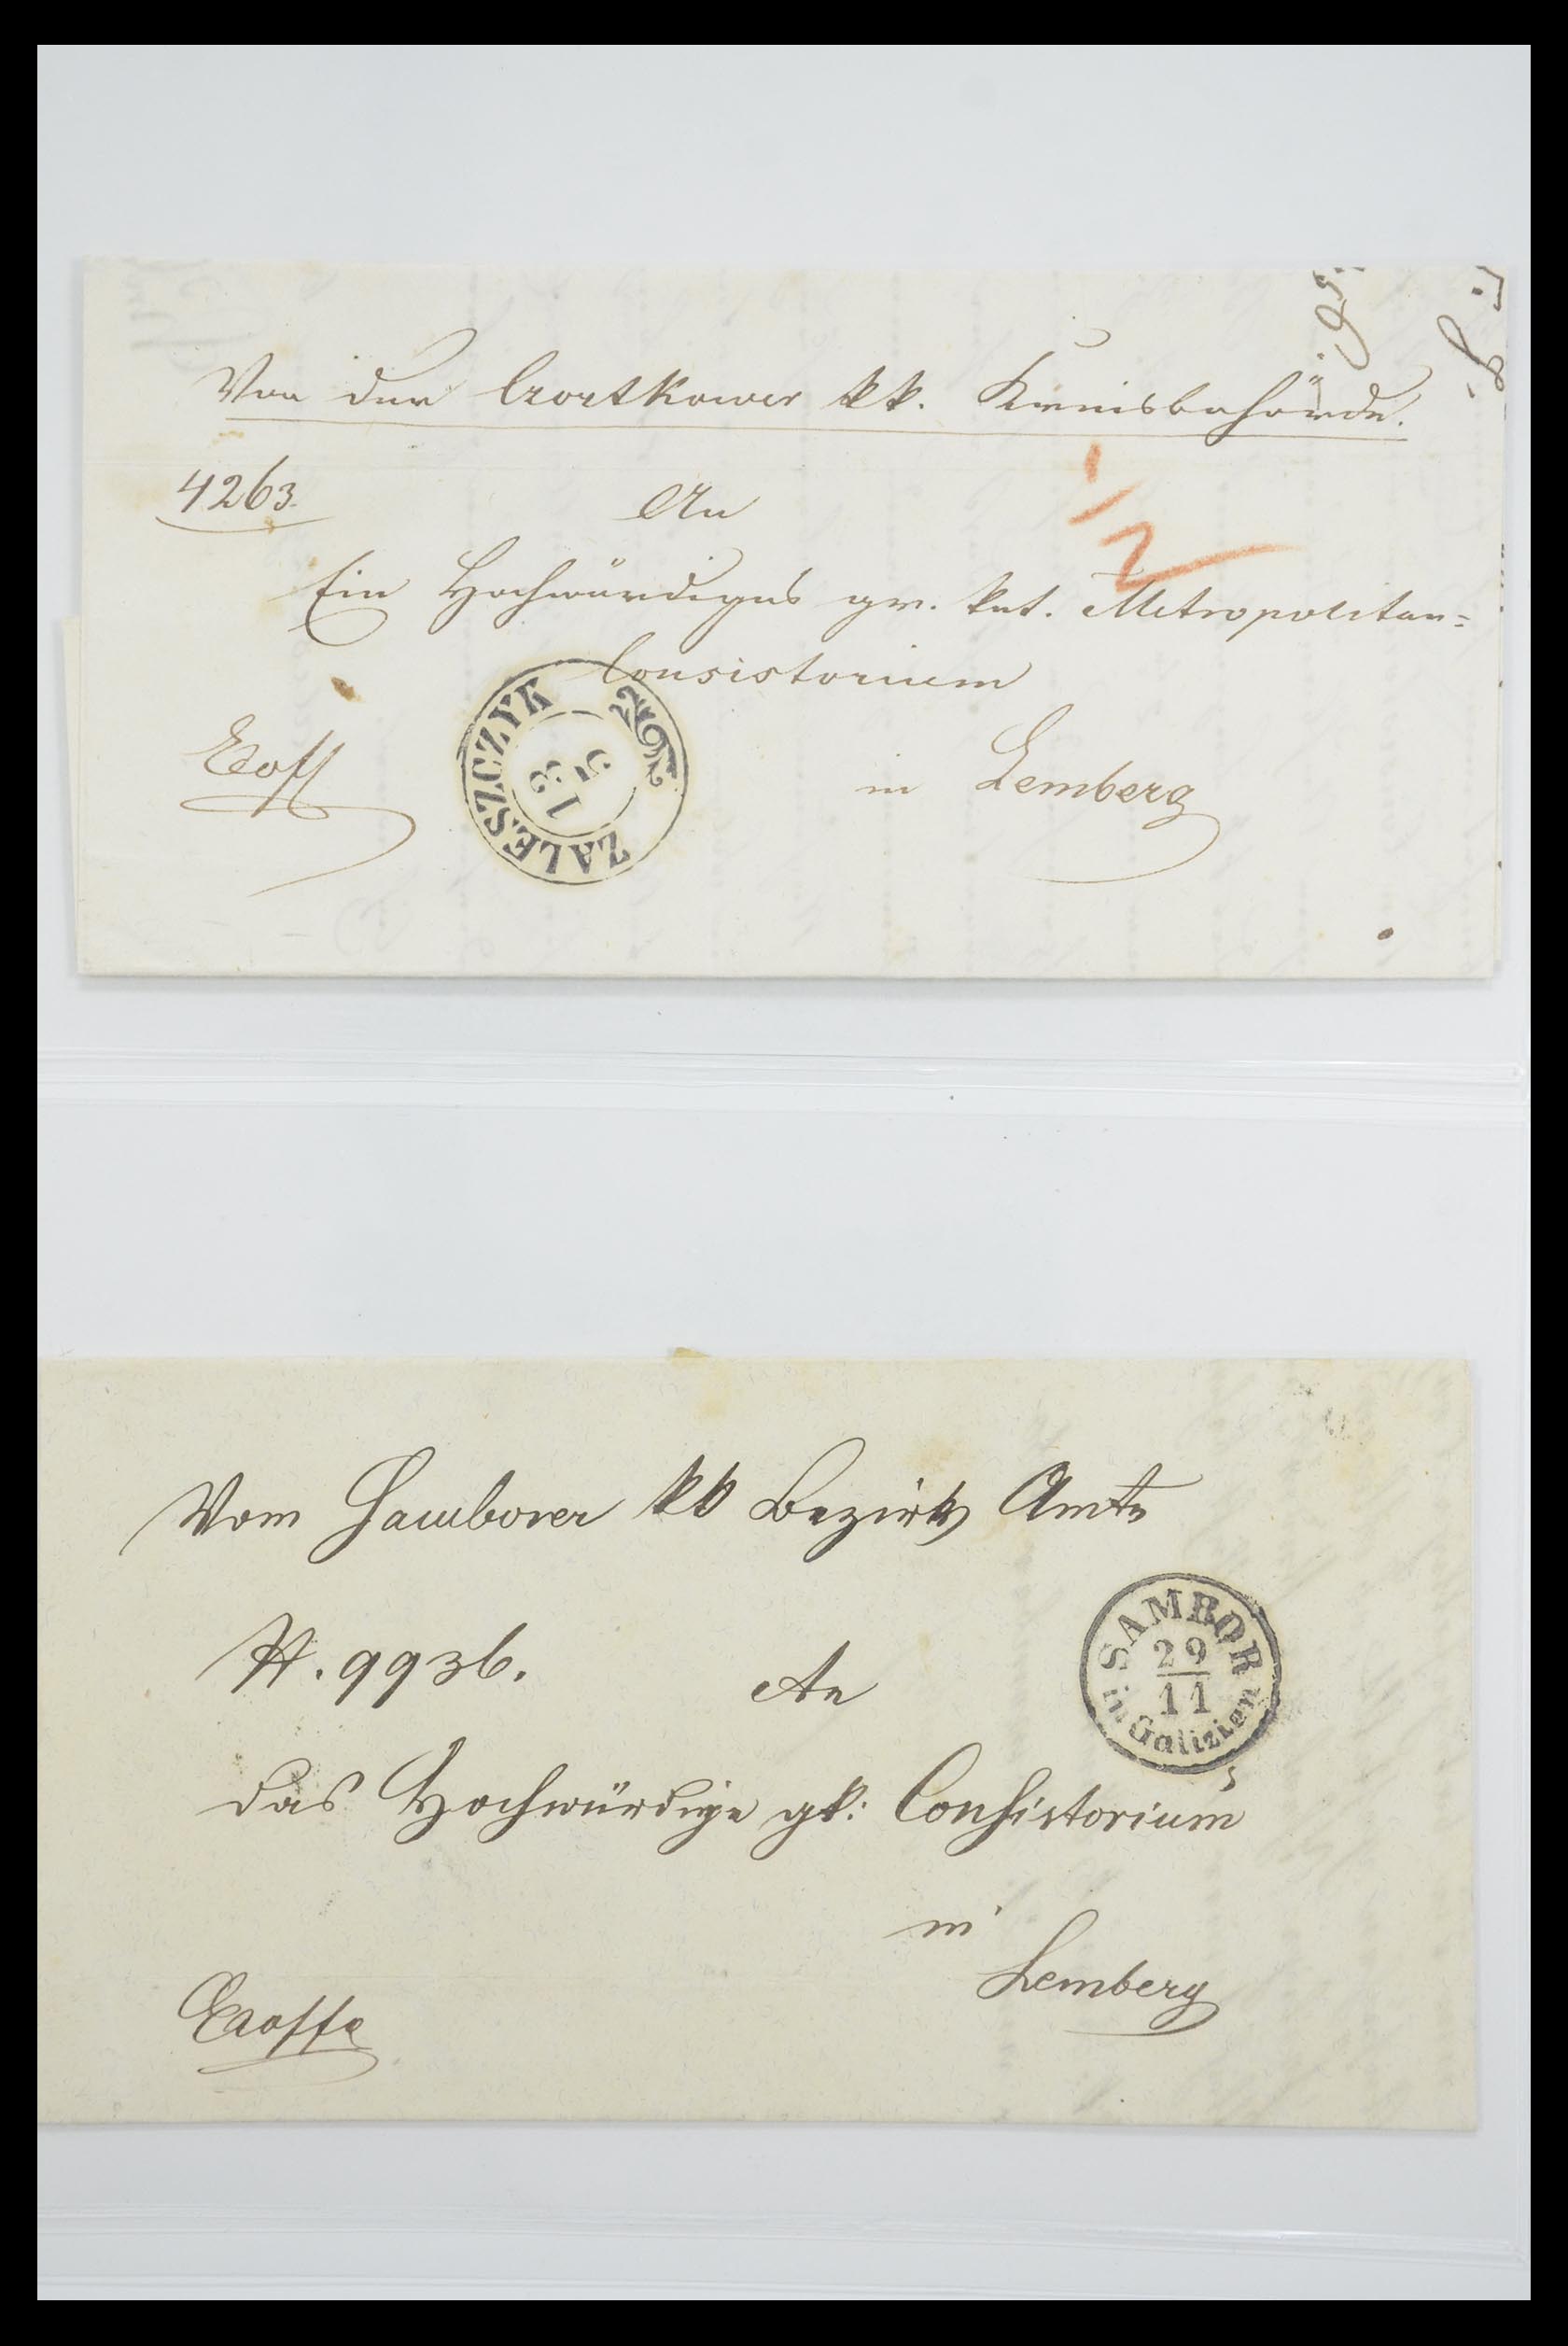 Von der Czortkower kk. Kreisbehörde.
4263.
An
1/2
Ein Hochwürdiges gr. kat. Metropolitan=
Consistorium
ZALESZCZYK
13
5
Exoff
in Lemberg
Vom Samborer kk Bezirks Amte
N. 9936.
An
SAMBOR
29
11
in Galizien
das Hochwürdige gk: Consistorium
in
Lemberg
Exoffo